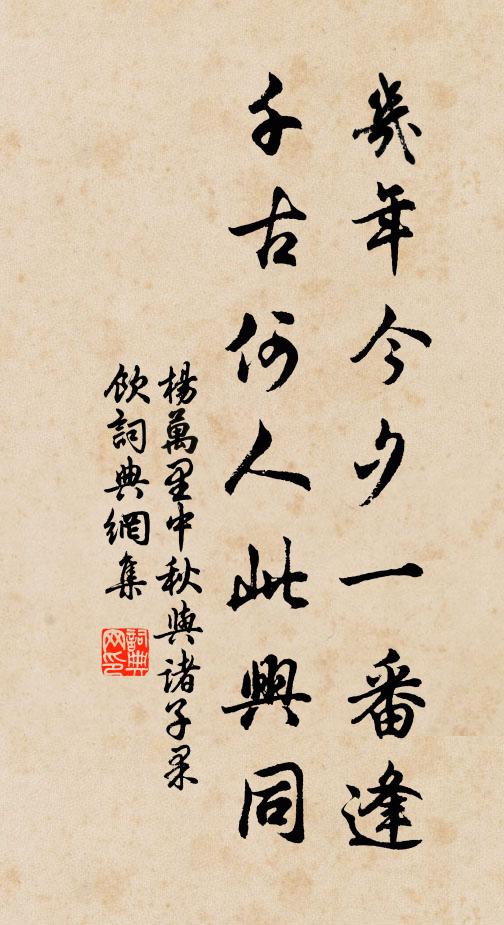 幾年今夕一番逢
千古何人此興同
楊萬里中秋與諸子果
飲詞典網集
詞典网印